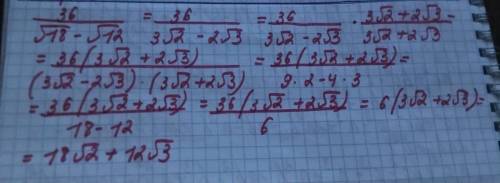 36/(√18 − √12) = 36/(3√2 − 2√3) = 36/(3√2 − 2√3) · (3√2 + 2√3)/(3√2 + 2√3) =
= 36(3√2 + 2√3)/((3√2 − 2√3) · (3√2 + 2√3)) = 36(3√2 + 2√3)/(9 · 2 − 4 · 3) =
= 36(3√2 + 2√3)/(18 − 12) = 36(3√2 + 2√3)/6 = 6(3√2 + 2√3) =
= 18√2 + 12√3